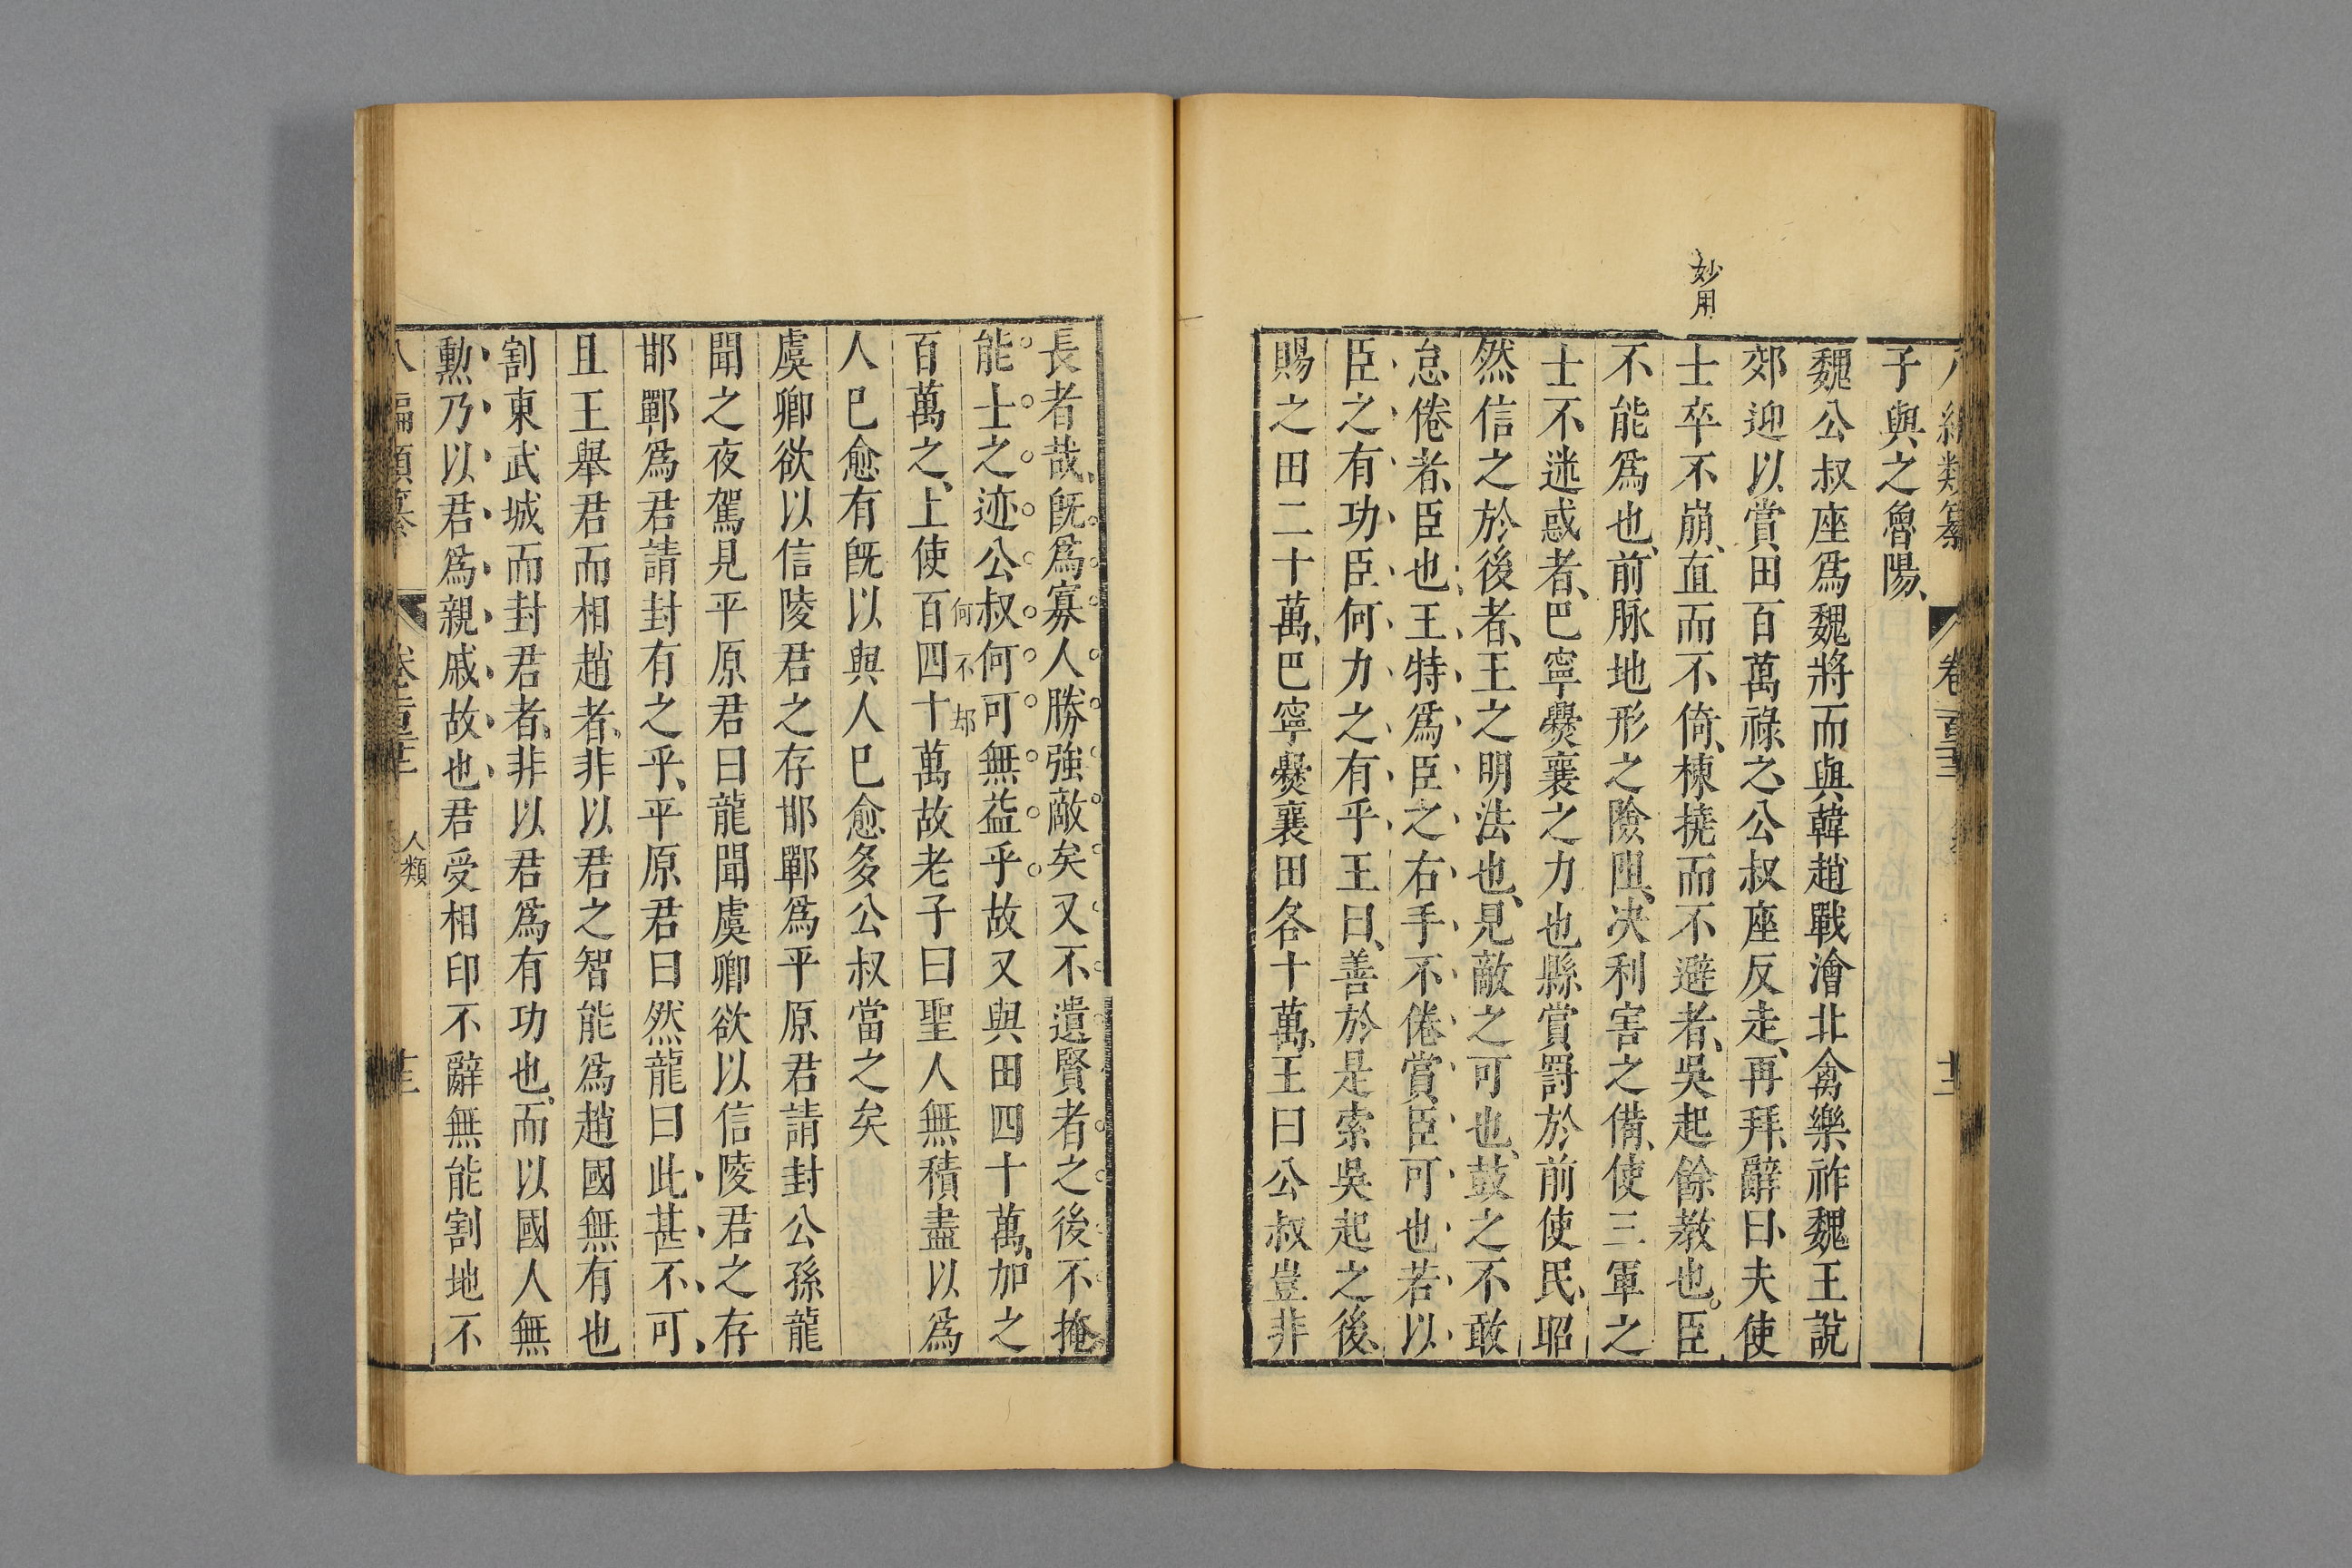 子與之魯陽
妙用
魏公叔座爲魏將而與韓趙戰澮北禽樂祚魏王說
郊迎以賞田百萬祿之公叔座反走再拜辭曰夫使
士卒不崩直而不倚棟撓而不避者吳起餘教也臣
不能爲也前脉地形之險阻决利害之備使三軍之
士不迷惑者巴寧爨襄之力也縣賞罸於前使民昭
然信之於後者王之明法也見敵之可也鼓之不敢
怠倦者臣也王特爲臣之右手不倦賞臣可也若以
臣之有功臣何力之有乎王曰善於是索吳起之後
賜之田二十萬巴寧爨襄田各十萬王曰公叔豈非
長者哉旣爲寡人勝強敵矣又不遺賢者之後不掩
能士之迹公叔何可無益乎故又與田四十萬加之
何不却
百萬之上使百四十萬故老子曰聖人無積盡以爲
人已愈有旣以與人已愈多公叔當之矣
虞卿欲以信陵君之存邯鄲爲平原君請封公孫龍
聞之夜駕見平原君曰龍聞虞卿欲以信陵君之存
邯鄲爲君請封有之乎平原君曰然龍曰此甚不可
且王舉君而相趙者非以君之智能爲趙國無有也
割東武城而封君者非以君爲有功也而以國人無
勲乃以君爲親戚故也君受相印不辭無能割地不
人類